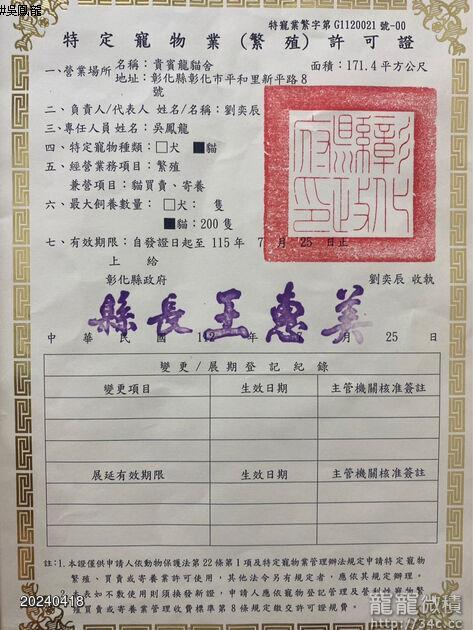 #吳鳳龍
特寵業繁字第G1120021號-00
特定寵物業(繁殖)許可證
一、營業場所 名稱：貴賓龍貓舍 面積：171.4平方公尺
地址：彰化縣彰化市平和里新平路8
號
二、負責人/代表人 姓名/名稱：劉奕辰
三、專任人員 姓名：吳鳳龍
四、特定寵物種類：□犬 ■貓
五、經營業務項目：繁殖
兼營項目：貓買賣、寄養
六、最大飼養數量：□犬： 隻
■貓：200 隻
七、有效期限：自發證日起至 115年 7 月 25 日止
上 給
彰化縣政府 劉奕辰 收執
彰化縣政府印
縣長王惠美
中 華 民 國 112 年 7 月 25 日
變更/展期登記紀錄
變更項目 生效日期 主管機關核准簽註
展延有效期限 生效日期 主管機關核准簽註
註：1.本證僅供申請人依動物保護法第22條第1項及特定寵物業管理辦法規定申請特定寵物
繁殖、買賣或寄養業許可使用，其他法令另有規定者，應依其規定辦理。
2.本表如不敷使用則須換發新證，申請人應依寵物登記管理及營利性寵物繁
殖買賣或寄養業管理收費標準第8條規定繳交許可證規費。
20240418
龍龍微積
http://34c.cc